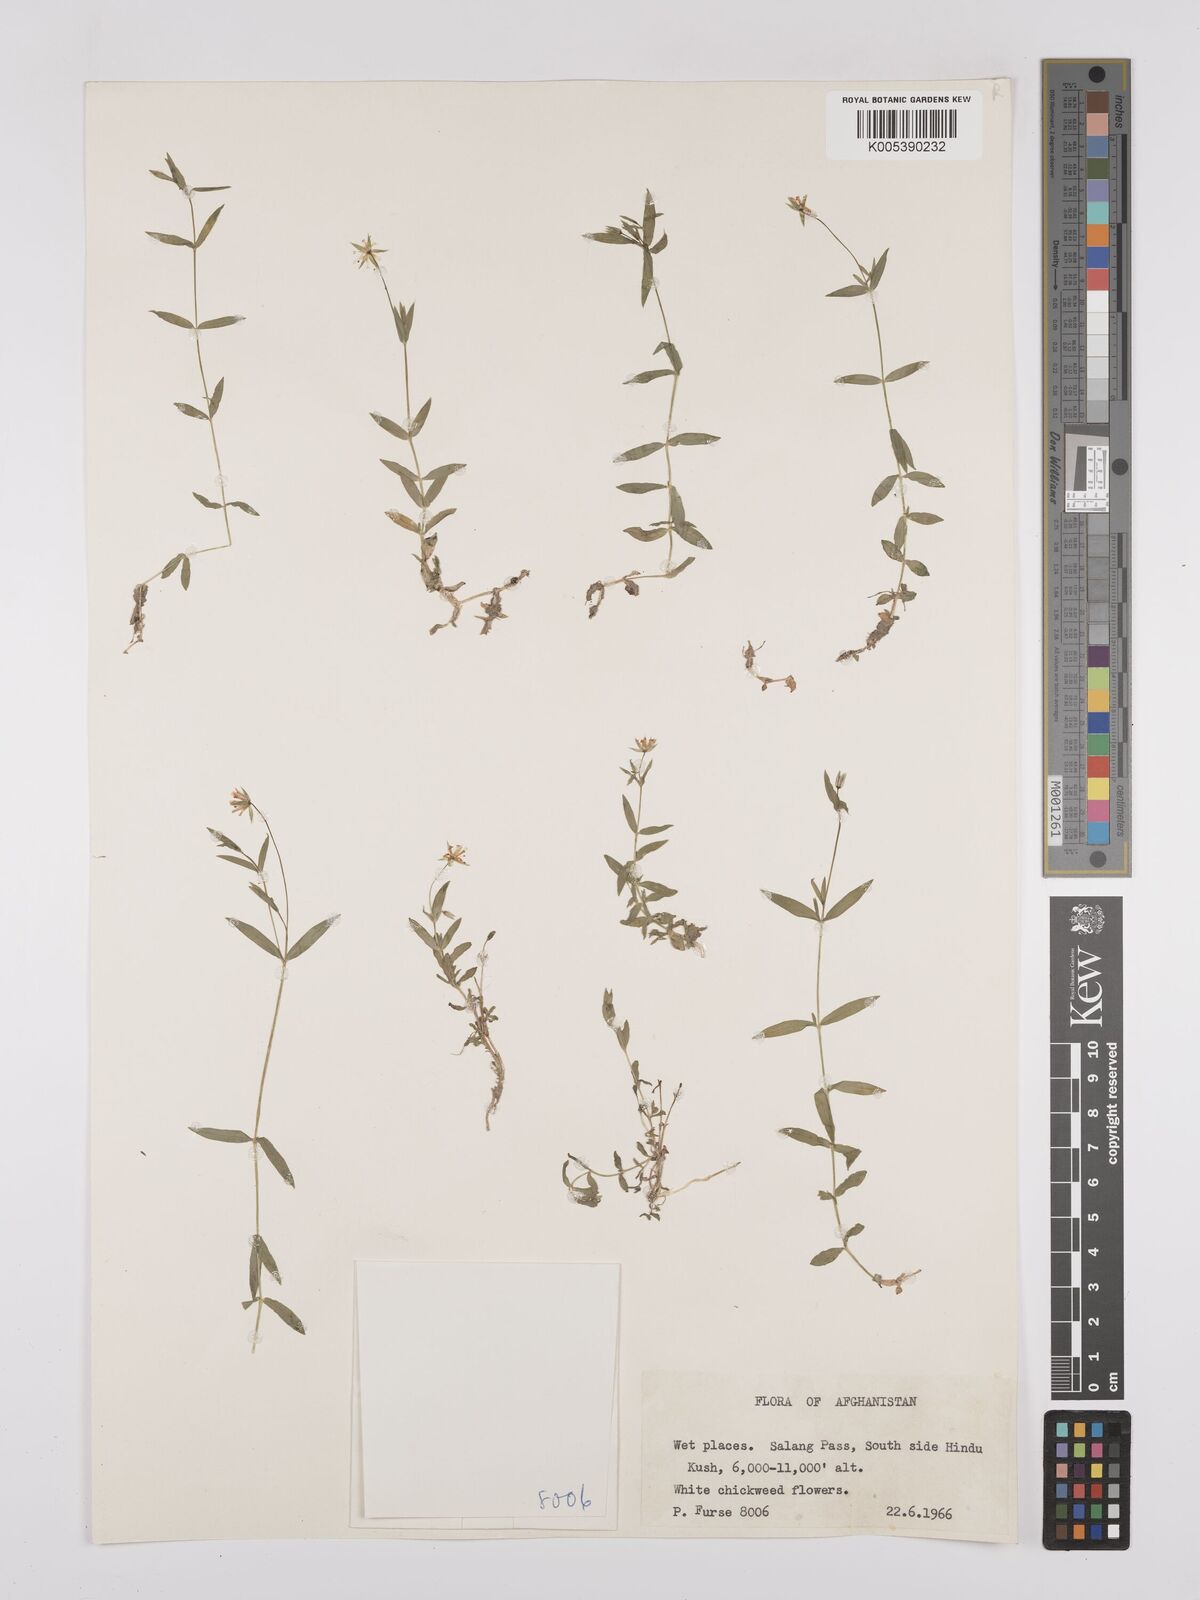 ROYAL BOTANIC GARDENS KEW
K005390232
inches
Density
Don Williams
M001261
centimeters
Royal Botanic Gardens
Kew
copyright reserved
10 9 8 7 6 5 4 3 2 1 0 cm
8006
FLORA OF AFGHANISTAN
Wet places. Salang Pass, South side Hindu
Kush, 6,000-11,000' alt.
White chickweed flowers.
P. Furse 8006 22.6.1966